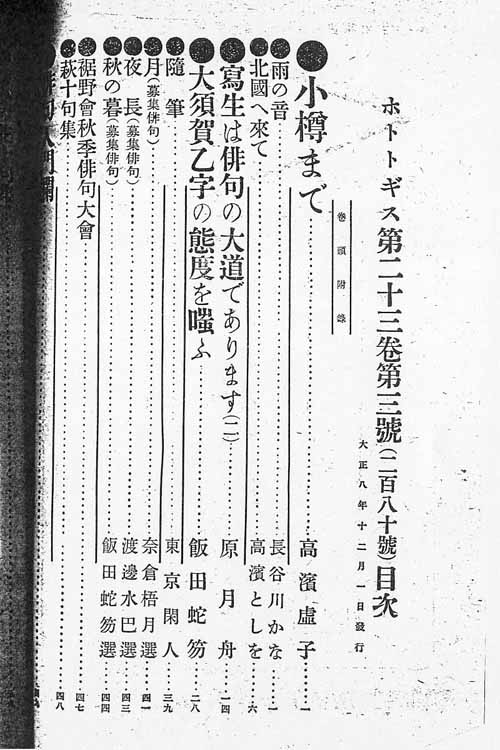 ホトトギス第二十三卷第三號（二百八十號）目次
大正八年十二月一日發行
卷頭附錄
●小樽まで……高濱虛子……一
●雨の音……長谷川かな……一
●北國へ來て……高濱としを……六
●寫生は俳句の大道であります（二）……原月舟……一四
●大須賀乙字の態度を嗤ふ……飯田蛇笏……二八
●隨筆……東京閑人……三九
●月（募集俳句）……奈倉梧月選……四一
●夜長（募集俳句）……渡邊水巴選……四三
●秋の暮（募集俳句）……飯田蛇笏選……四四
●裾野會秋季俳句大會……四七
●萩十句集……四八